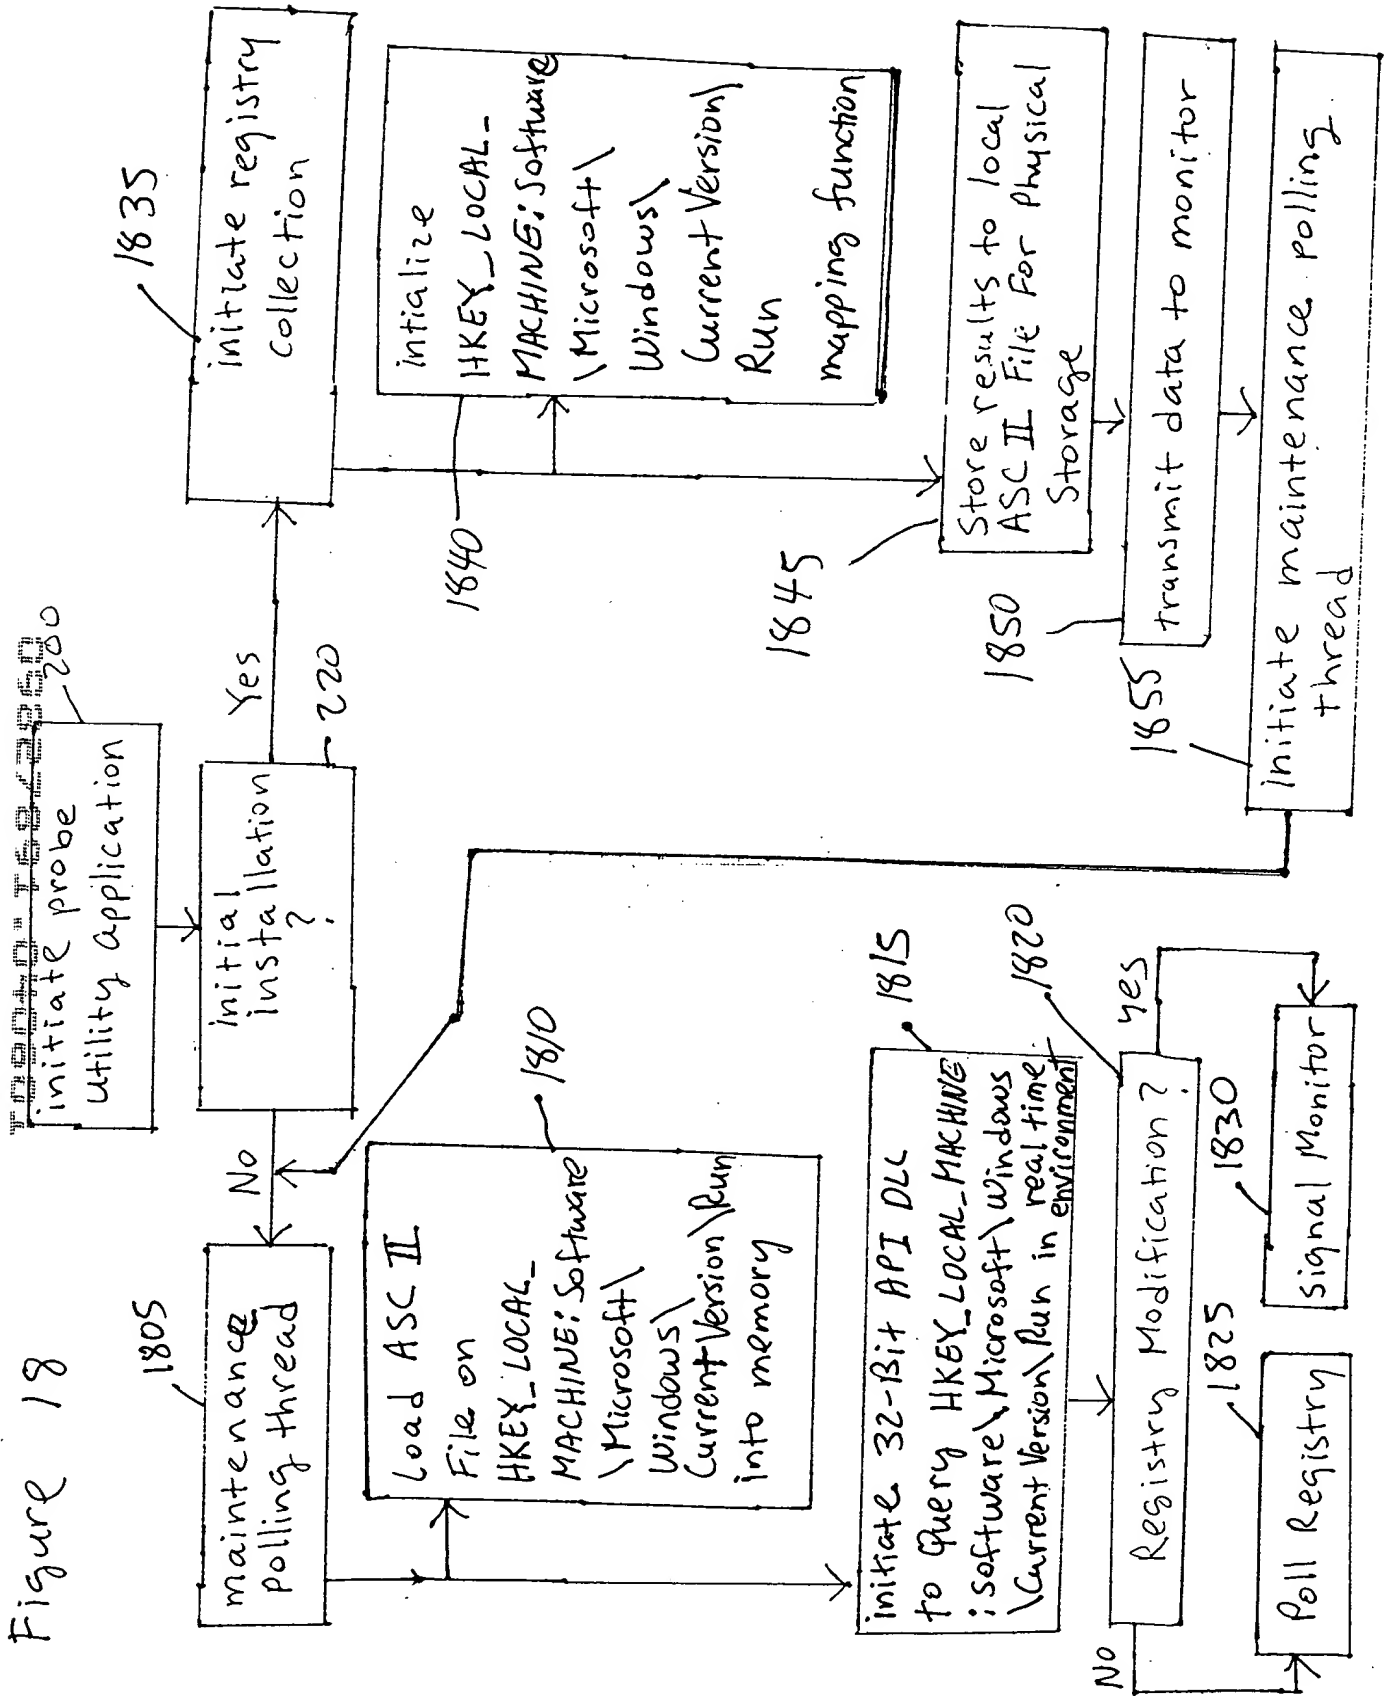 Figure 18
initiate probe
Utility application
200
initial
installation
?
220
Yes
No
maintenance
polling thread
1805
Load ASC II
File on
HKEY_LOCAL_
MACHINE:Software
\Microsoft\
Windows\
Current Version\Run
into memory
1810
initiate 32-Bit API DLL
to Query HKEY_LOCAL_MACHINE
:Software\Microsoft\Windows
\Current Version\Run in real time
environment
1815
Registry Modification?
1820
No
yes
Poll Registry
1825
Signal Monitor
1830
initiate registry
collection
1835
intialize
HKEY_LOCAL_
MACHINE:Software
\Microsoft\
Windows\
Current Version\
Run
mapping function
1840
Store results to local
ASC II File For Physical
Storage
1845
transmit data to monitor
1850
initiate maintenance polling
thread
1855